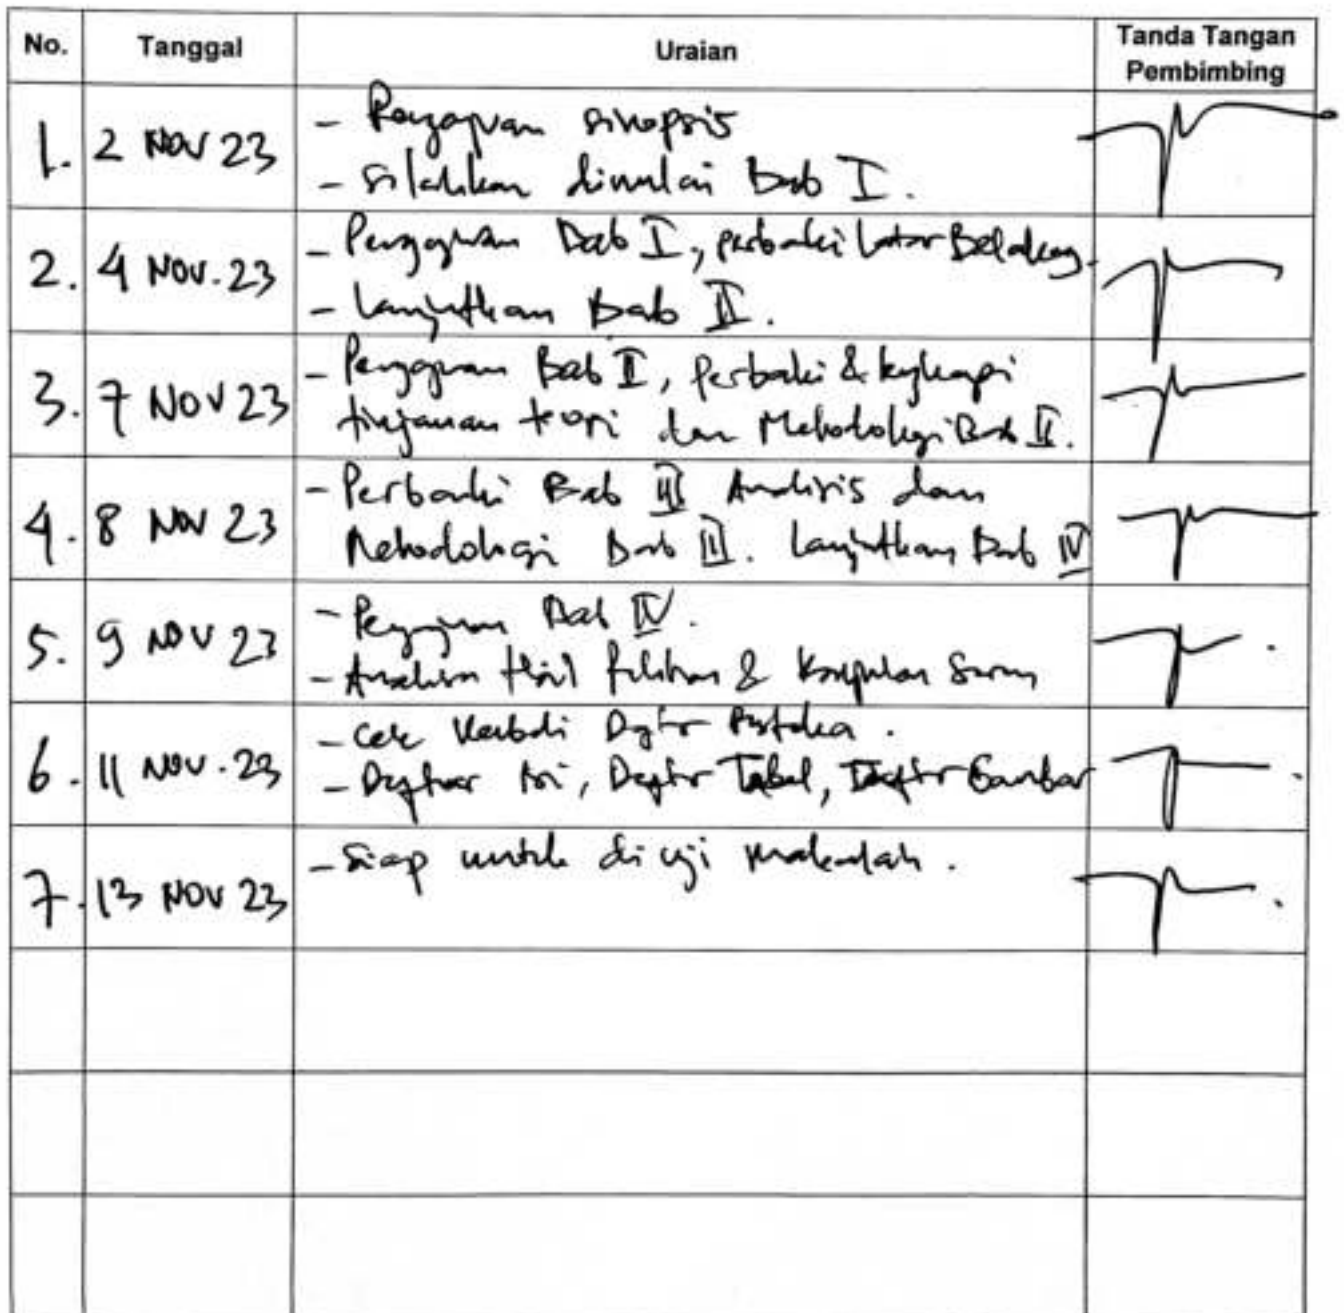 No. Tanggal Uraian Tanda Tangan Pembimbing
1. 2 Nov 23 - Pengajuan sinopsis
- Silahkan dimulai Bab I.
2. 4 Nov. 23 - Pengajuan Bab I, perbaiki Latar Belakang.
- Lanjutkan Bab II.
3. 7 Nov 23 - Pengajuan Bab II, Perbaiki & lengkapi
tinjauan teori dan Metodologi Bab II.
4. 8 Nov 23 - Perbaiki Bab III Analisis dan
Metodologi Bab III. Lanjutkan Bab IV
5. 9 Nov 23 - Pengajuan Bab IV.
- Analisa Hasil & Saran
6. 11 Nov. 23 - Cek Kembali Daftar Pustaka.
- Daftar Isi, Daftar Tabel, Daftar Gambar
7. 13 Nov 23 - Siap untuk di uji makalah.